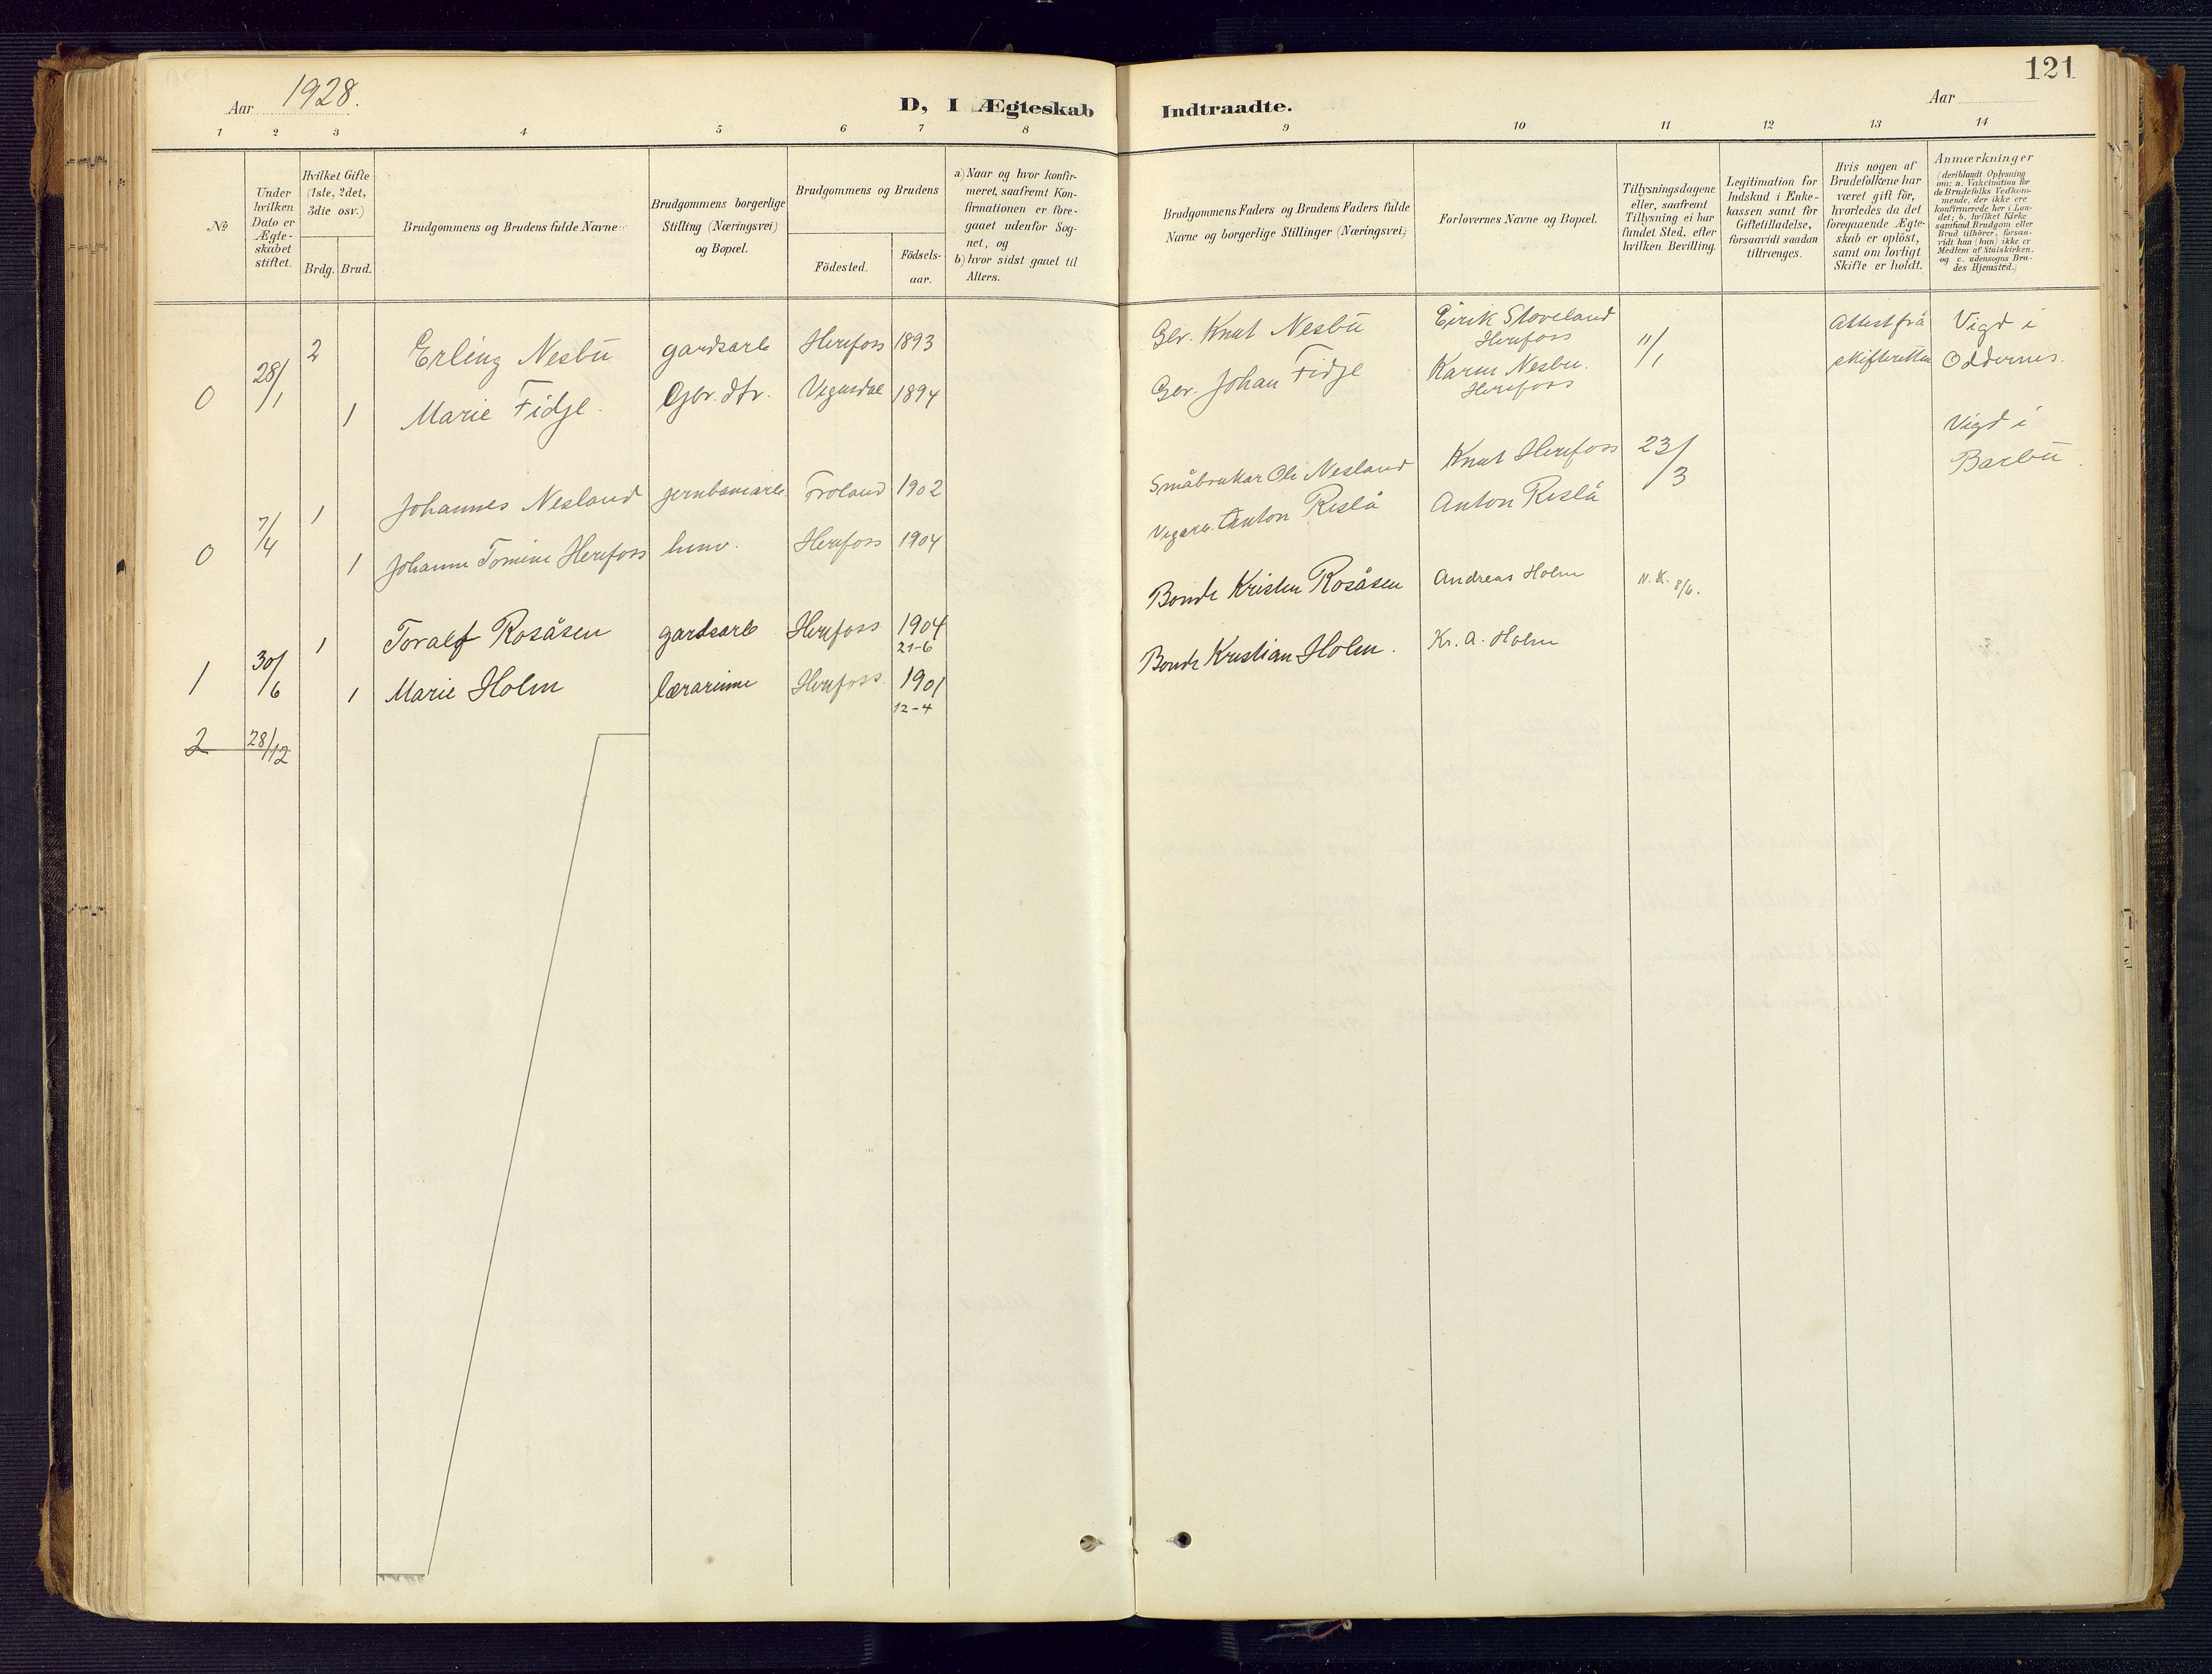 121
Aar 1928.
D, I Ægteskab Indtraadte.
Aar
1 2 3 4 5 6 7 8 9 10 11 12 13 14
No
Under
hvilken
Dato er
Ægte-
skabet
stiftet.
Hvilket Gifte
(1ste, 2det,
3die osv.)
Brdg. Brud.
Brudgommens og Brudens fulde Navne
Brudgommens borgerlige
Stilling (Næringsvei)
og Bopæl.
Brudgommens og Brudens
Födested.
Födsels-
aar.
a) Naar og hvor konfir-
meret, saafremt Kon-
firmationen er fore-
gaaet udenfor Sog-
net, og
b) hvor sidst gaaet til
Alters.
Brudgommens Faders og Brudens Faders fulde
Navne og borgerlige Stillinger (Næringsvei)
Forlovernes Navne og Bopæl.
Tillysningsdagene
eller, saafremt
Tillysning ei har
fundet Sted, efter
hvilken Bevilling.
Legitimation for
Indskud i Enke-
kassen samt for
Giftetilladelse,
forsaavidt saadan
tiltrænges.
Hvis nogen af
Brudefolkene har
været gift för,
hvorledes da det
foregaaende Ægte-
skab er oplöst,
samt om lovligt
Skifte er holdt.
Anmærkninger
(deriblandt Oplysning
om: a. Vakcination for
de Brudefolks Vedkom-
mende, der ikke ere
konfirmerede her i Lan-
det; b. hvilket Kirke
samfund Brudgom eller
Brud tilhörer, forsaa-
vidt han (hun) ikke er
Medlem af Statskirken,
og c. udensogns Bru-
des Hjemsted.)
0 28/1 2 Erling Nesbü gardsarb Herefoss 1893 Gbr. Knut Nesbü Eirik Stoveland Herefoss 11/1 Attest frå skifteretten Vigd i Oddernes.
1 Marie Fidje. Gbr. dtr. Vegusdal 1894 Gbr. Johan Fidje Karen Nesbu. Herefoss
0 7/4 1 Johannes Nesland jernbanearb. Froland 1902 Småbrukar Ole Nesland Knut Herefoss 23/3 Vigd i Barbü.
1 Johanne Tomine Herefoss Herefoss 1904 Vegarb. Anton Reslå Anton Reslå
1 30/6 1 Toralf Rosåsen gardsarb Herefoss 1904 21-6 Bonde Kristen Rosåsen Andreas Holm N. K. 8/6.
1 Marie Holm lærarinne Herefoss 1901 12-4 Bonde Kristian Holm. Kr. A. Holm
2 28/12